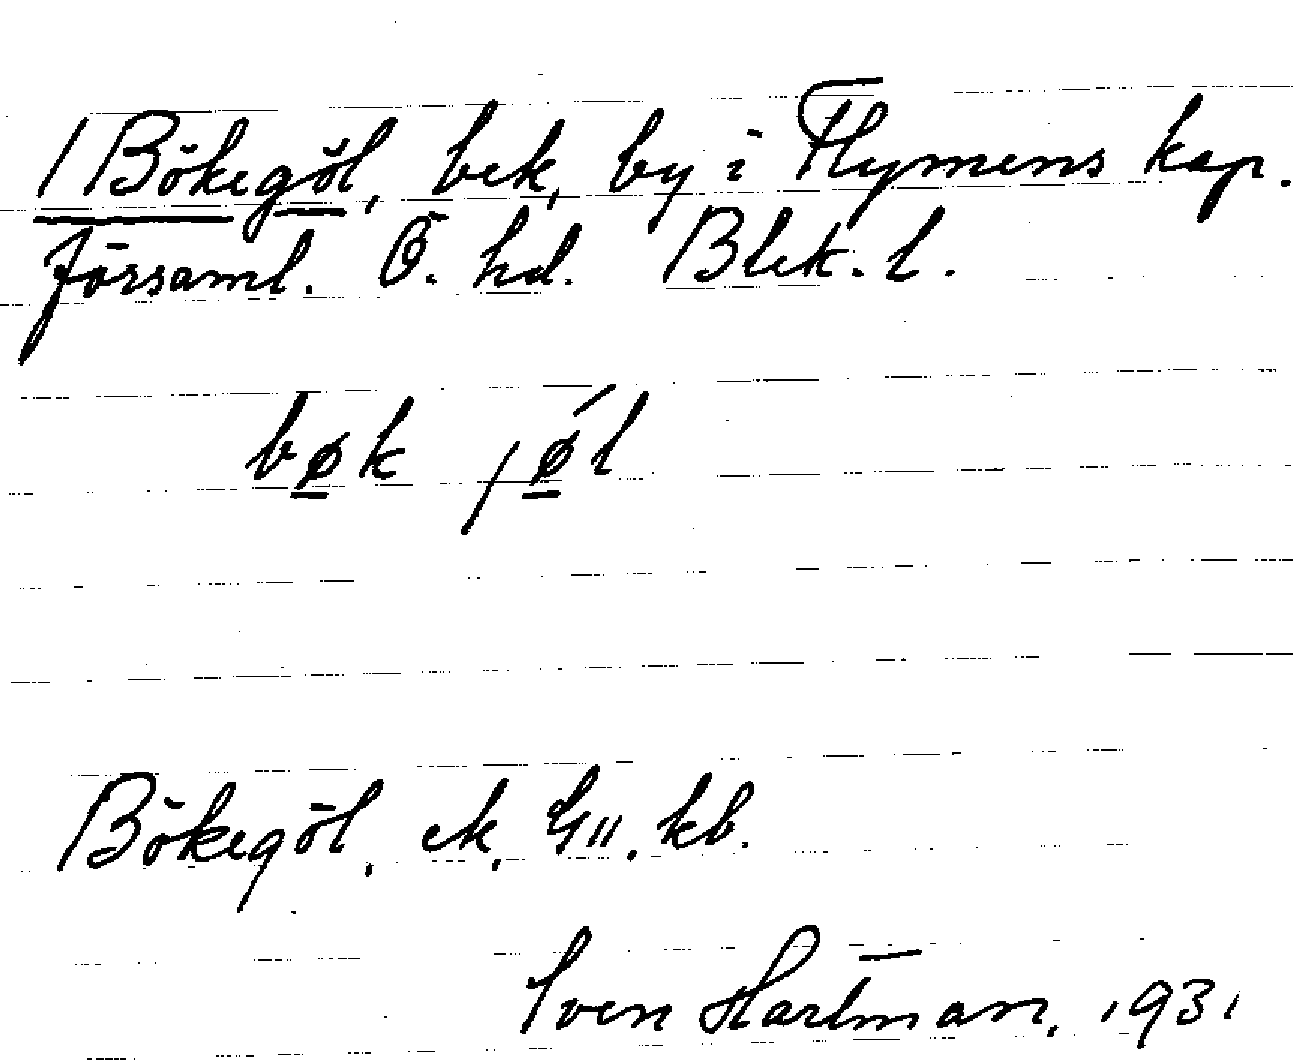 / Bökegöl, bek, by i Flymens kap.
församl. Ö. hd. Blek. l.
bøk jǿl
Bökegöl, ek, kb.
Sven Hartman, 1931